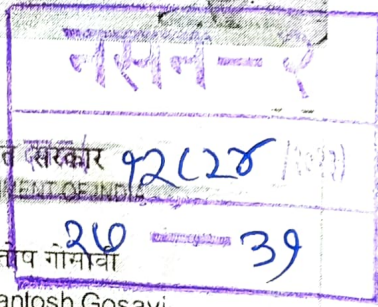 नसन - १
त सरकार १२८२४
MENT OF INDIA
२७ - ३१
तोष गोसावी
antosh Gosavi